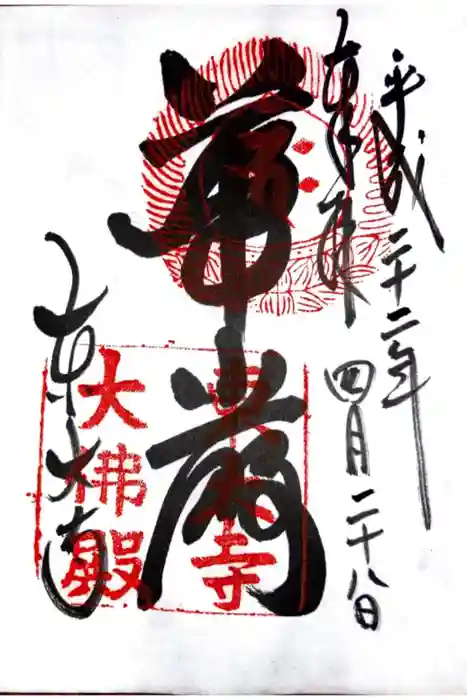 平成二十二年
奉拝 四月二十八日
華嚴
東大寺
大佛殿
東大寺